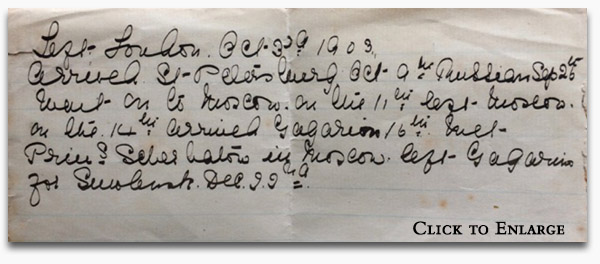 Left London. Oct 3rd 1903
Arrived St Petersburg Oct 9th Russian Sep 26th
Went on to Moscow. on the 11th left Moscow.
on the 14th arrived Gagarion 16th. met
Prin? Scherbatow in Moscow. left Gagarin
for Smolensk. Dec. 22nd.
CLICK TO ENLARGE